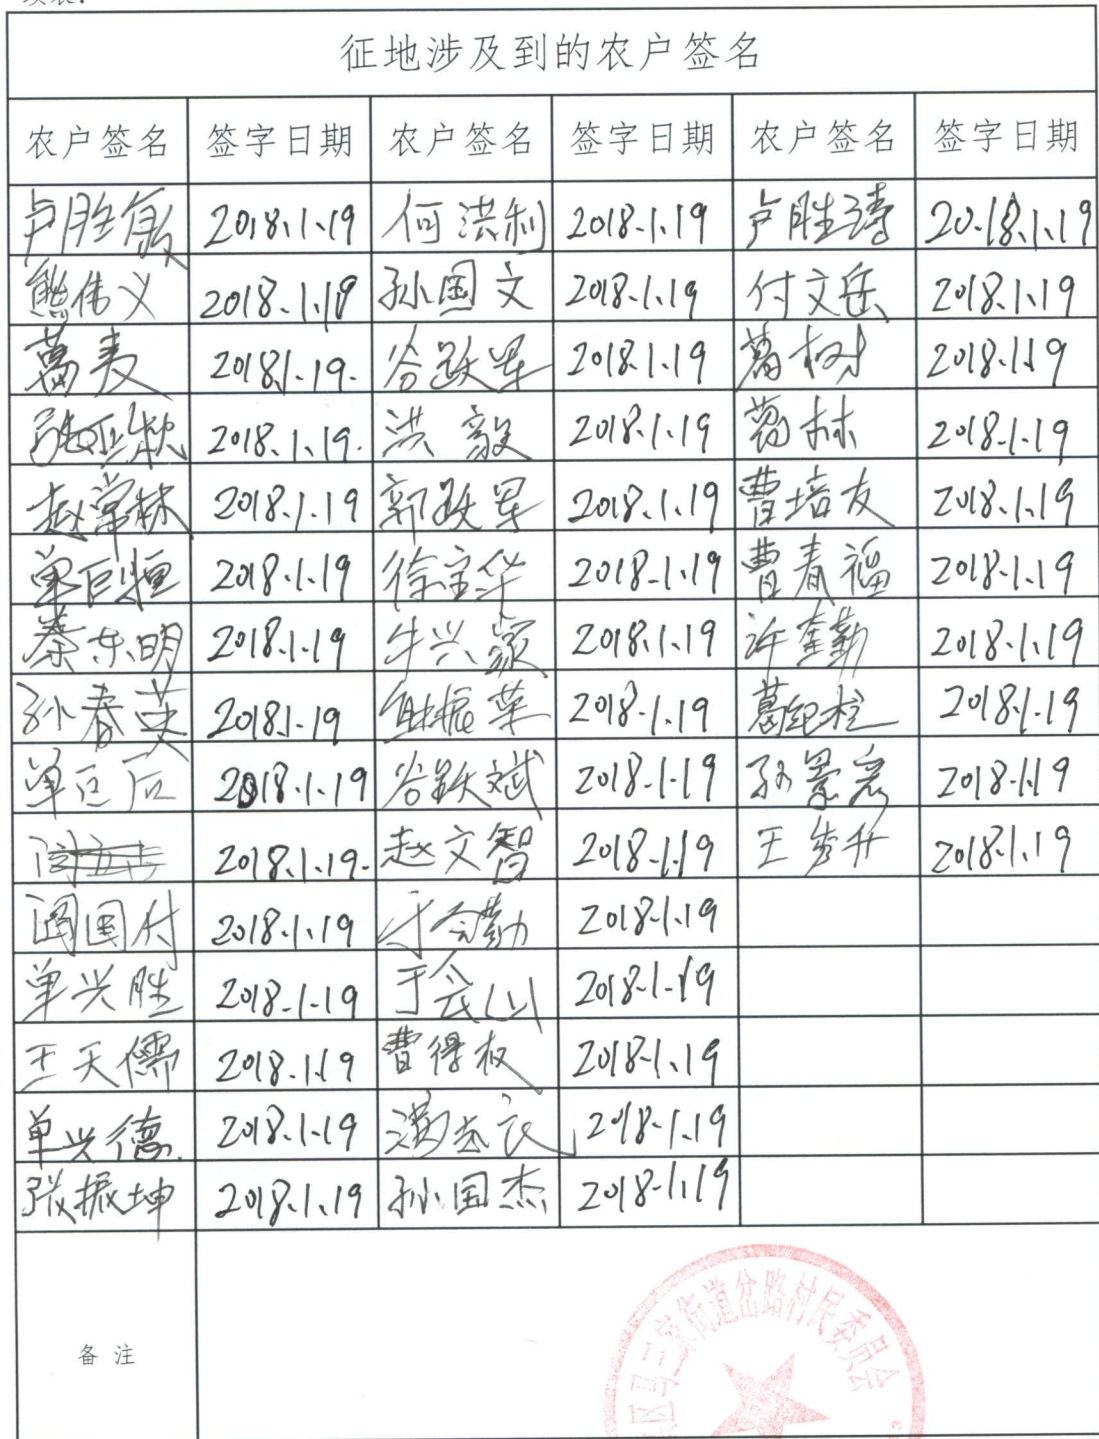 征地涉及到的农户签名
农户签名 签字日期 农户签名 签字日期 农户签名 签字日期
卢胜敏 2018.1.19 何洪利 2018.1.19 卢胜涛 2018.1.19
熊伟义 2018.1.19 孙国文 2018.1.19 付文岳 2018.1.19
2018.1.19. 谷跃军 2018.1.19 葛树 2018.1.19
张亚秋 2018.1.19. 洪毅 2018.1.19 葛林 2018.1.19
赵常林 2018.1.19 郭跃军 2018.1.19 曹培友 2018.1.19
单巨恒 2018.1.19 徐宝华 2018.1.19 曹春福 2018.1.19
秦东明 2018.1.19 牛兴家 2018.1.19 许奎勤 2018.1.19
孙春英 2018.1.19 2018.1.19 2018.1.19
单巨石 2018.1.19 谷跃斌 2018.1.19 孙景宏 2018.1.19
2018.1.19. 赵文智 2018.1.19 王岁升 2018.1.19
2018.1.19 于会勤 2018.1.19
单兴胜 2018.1.19 于会山 2018.1.19
王天儒 2018.1.19 曹得权 2018.1.19
单兴德. 2018.1.19 2018.1.19
张振坤 2018.1.19 孙国杰 2018.1.19
备注
区马三家街道岔路村民委员会